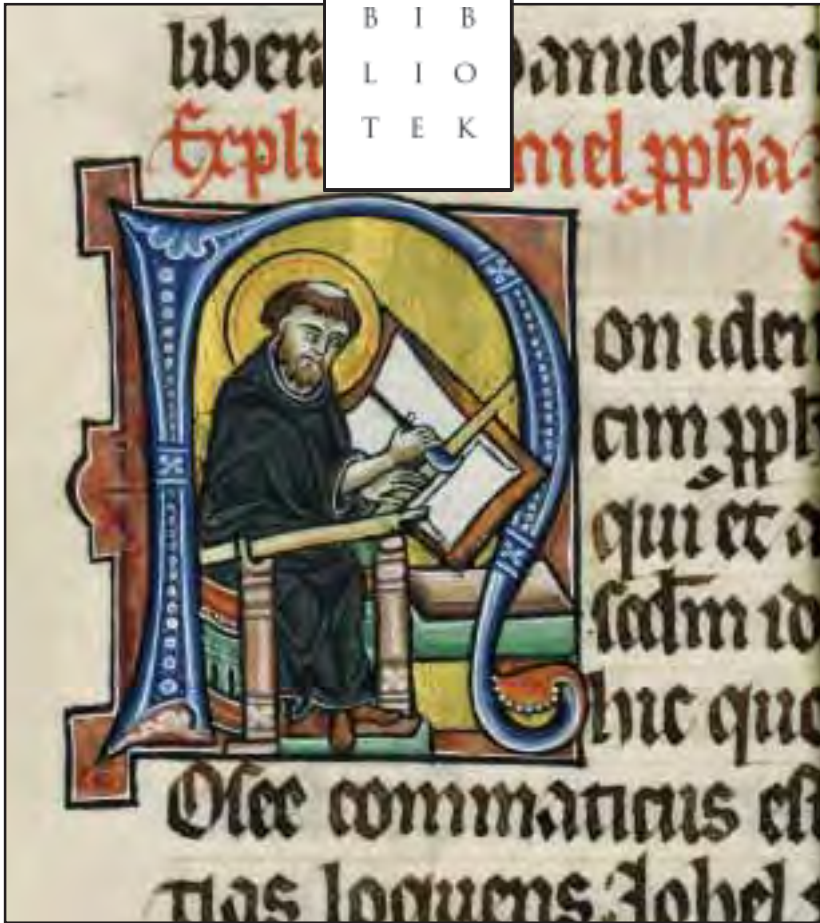 B I B
L I O
T E K
liber anielem
Expli niel ppha
on iden
cim pph
qui et a
scdm id
hic quo
Osee commaticus est
tias loquens. Johel